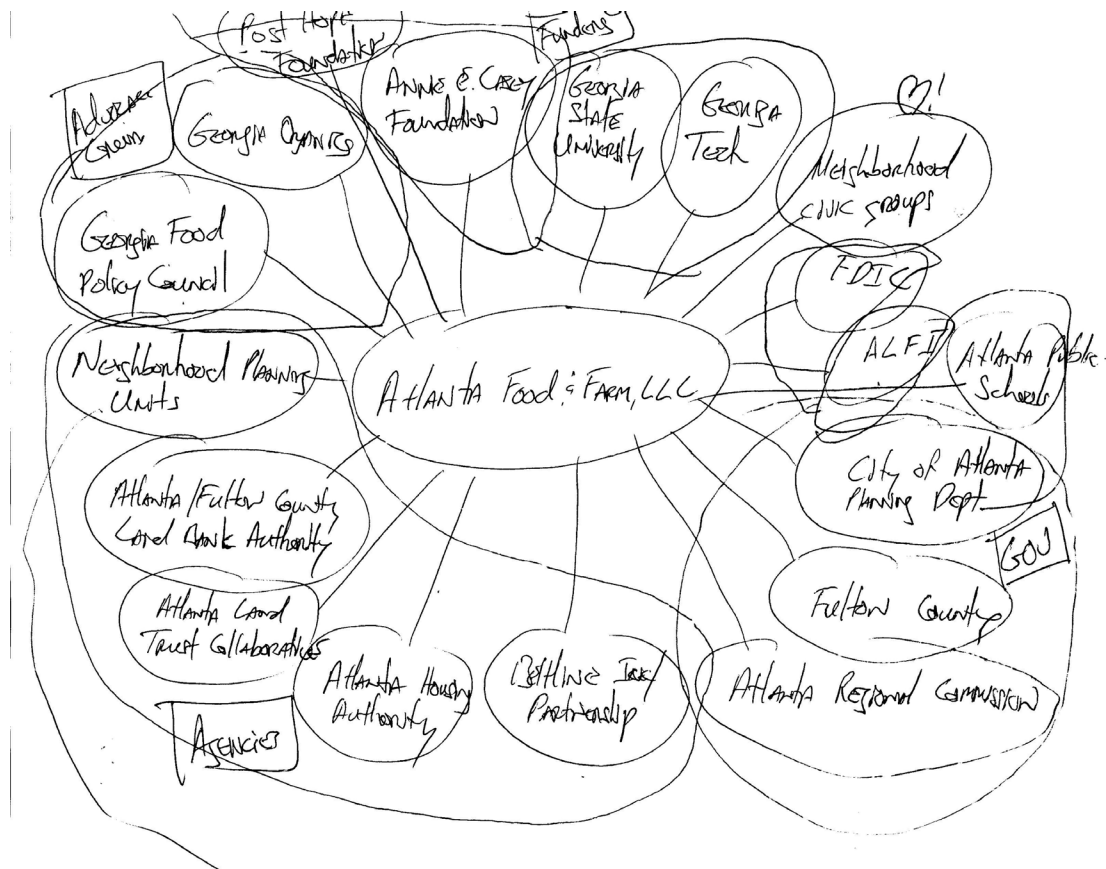 Post Hope
Foundation
Funders
Advocacy
Groups
Georgia Organics
Annie E. Casey
Foundation
Georgia
State
University
Georgia
Tech
Neighborhood
civic groups
Georgia Food
Policy Council
FDIC
ALFI
Atlanta Public
Schools
Neighborhood Planning
Units
Atlanta Food & Farm, LLC
City of Atlanta
Planning Dept.
GOV
Atlanta/Fulton County
Land Bank Authority
Fulton County
Atlanta Land
Trust Collaborative
Atlanta Housing
Authority
Beltline Inc/
Partnership
Atlanta Regional Commission
Agencies